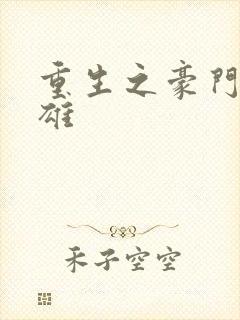 重生之豪門
雄
禾子空空